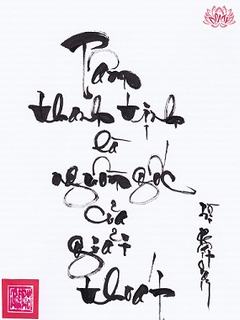 Tâm
thanh tịnh
là
nguồn gốc
của
giải
thoát